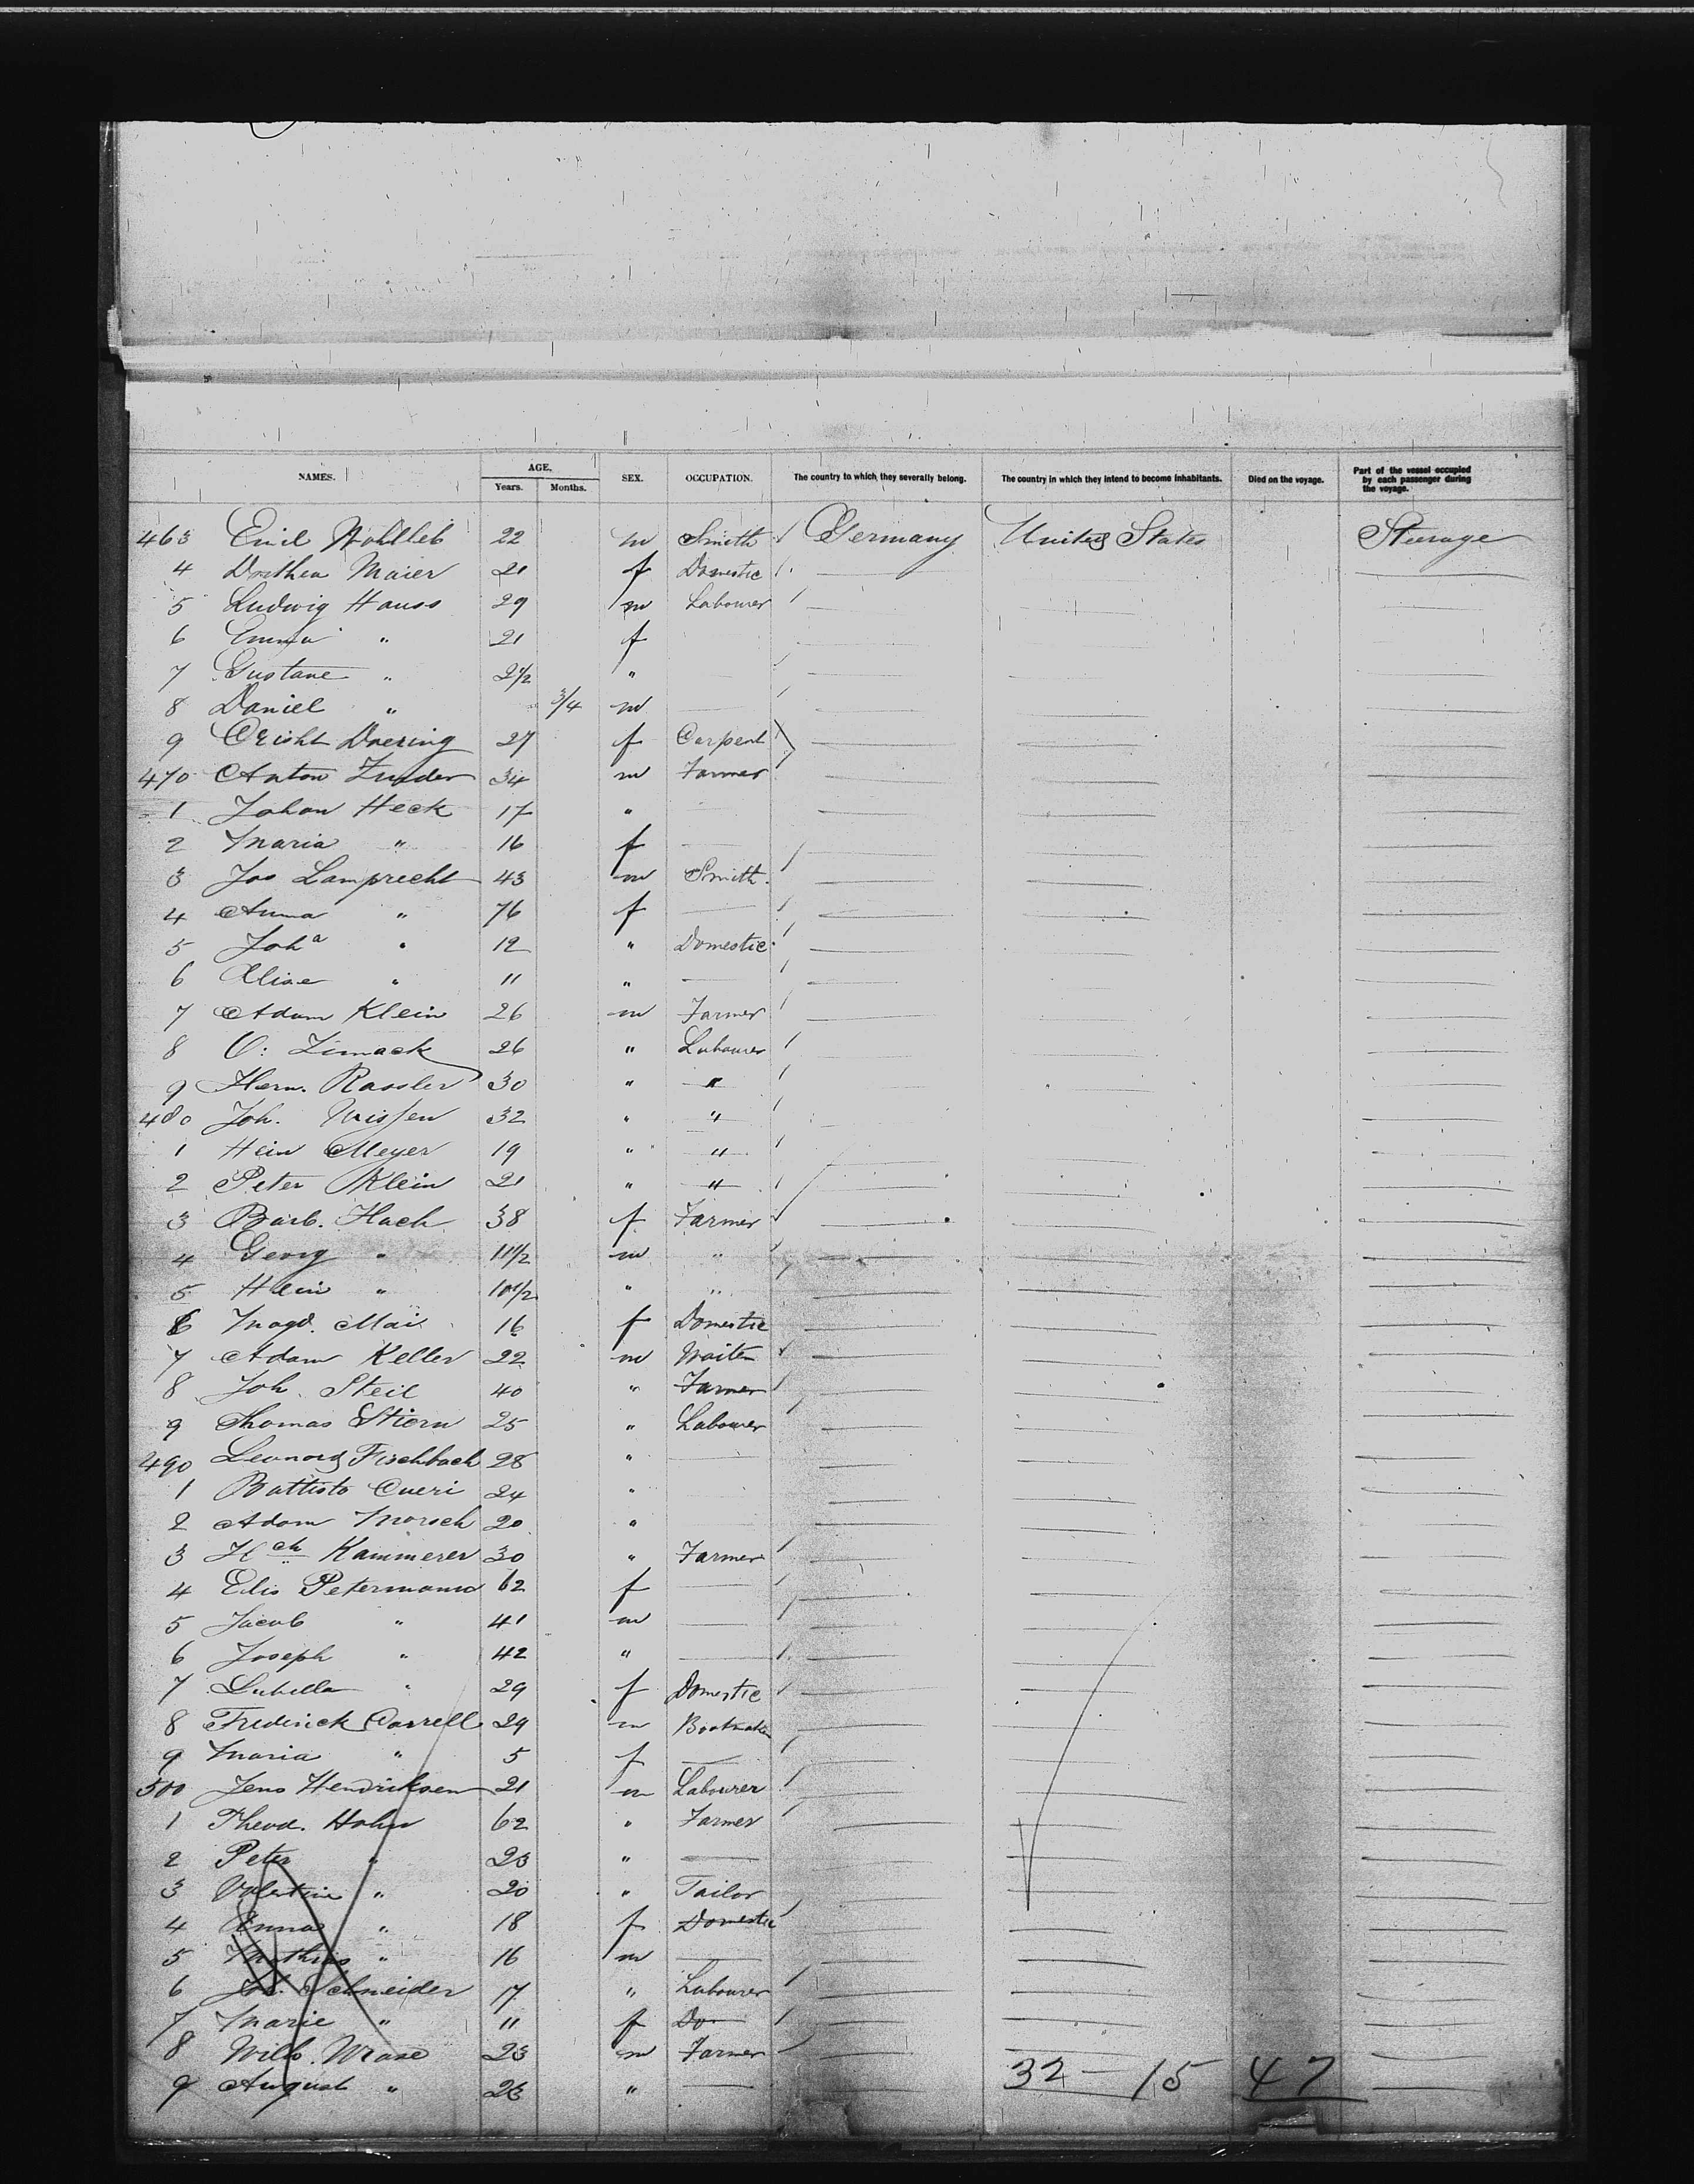 NAMES. AGE. SEX. OCCUPATION. The country to which they severally belong. The country in which they intend to become inhabitants. Died on the voyage. Part of the vessel occupied by each passenger during the voyage.
Years. Months.
463 Emil Wohlleb 22 m Smith Germany United States Steerage
4 Dorthea Maier 21 f Domestic
5 Ludwig Hauss 29 m Labourer
6 Emma " 21 f
7 Gustave " 2 1/2 "
8 Daniel " 3/4 m
9 Christ Doering 27 f Carpent
470 Anton Zunder 34 m Farmer
1 Johan Heck 17 "
2 Maria " 16 f
3 Jos Lamprecht 43 m Smith
4 Anna " 76 f
5 Joha " 12 " Domestic
6 Elise " 11 "
7 Adam Klein 26 m Farmer
8 O: Zimack 26 " Labourer
9 Herm. Rassler 30 " "
480 Joh. Nissen 32 " "
1 Hein Meyer 19 " "
2 Peter Klein 21 " "
3 Barb. Hach 38 f Farmer
4 Georg " 11 1/2 m "
5 Hein " 10 1/2 " "
6 Magd. Mai 16 f Domestic
7 Adam Keller 22 m Waiter
8 Joh. Steil 40 " Farmer
9 Thomas Stiern 25 " Labourer
490 Leonard Fischbach 28 "
1 Battisto Cueri 24 "
2 Adam Morsch 20 "
3 Hch Kammerer 30 " Farmer
4 Elis Petermann 62 f
5 Jacob " 41 m
6 Joseph " 42 "
7 " 29 f Domestic
8 Frederick Correll 29 m Bootmaker
9 Maria " 5 f
500 Jens Hendriksen 21 m Labourer
1 Theod. Hohn 62 " Farmer
2 Peter " 23 "
3 Valentin " 20 " Tailor
4 Anna " 18 f Domestic
5 Mathias " 16 m
6 Joh. Schneider 17 " Labourer
7 Marie " 11 f Do
8 Wilh. Wrase 23 m Farmer
9 August " 23 "
32 - 15 47